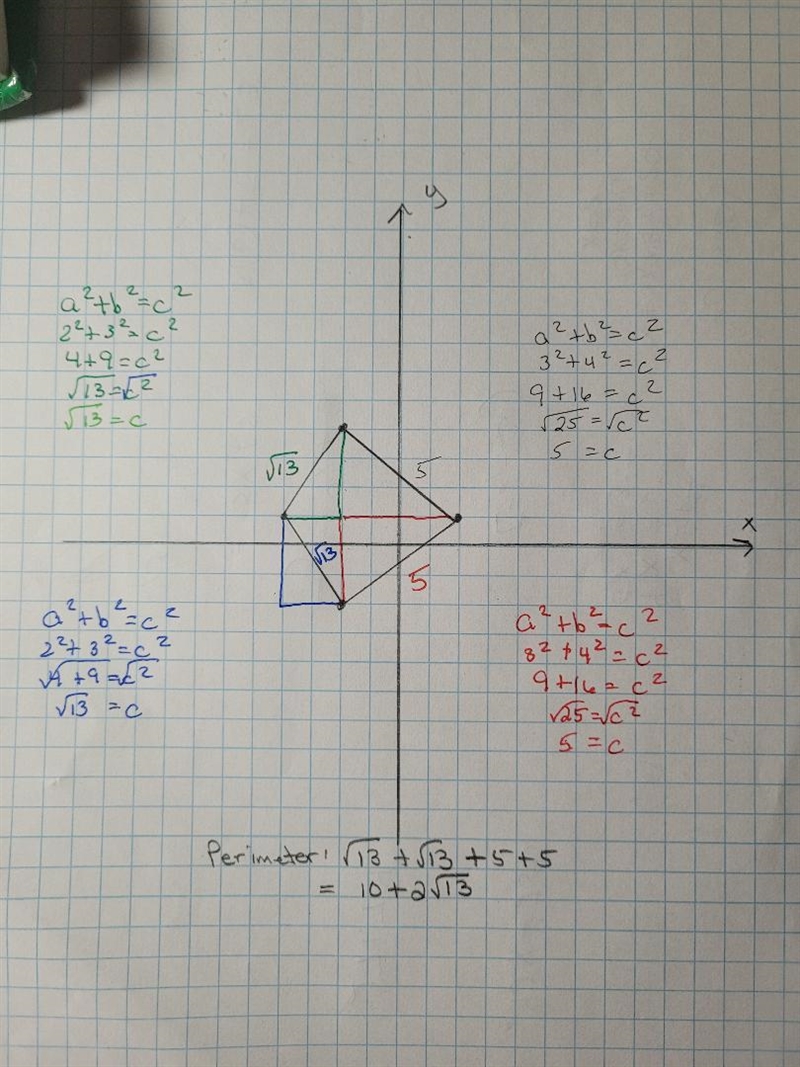 y
a²+b²=c²
2²+3²=c²
4+9=c²
√13=√c²
√13=c
a²+b²=c²
3²+4²=c²
9+16=c²
√25=√c²
5=c
√13
5
x
√13
5
a²+b²=c²
2²+3²=c²
√4+9=√c²
√13=c
a²+b²=c²
3²+4²=c²
9+16=c²
√25=√c²
5=c
Perimeter: √13+√13+5+5
= 10+2√13